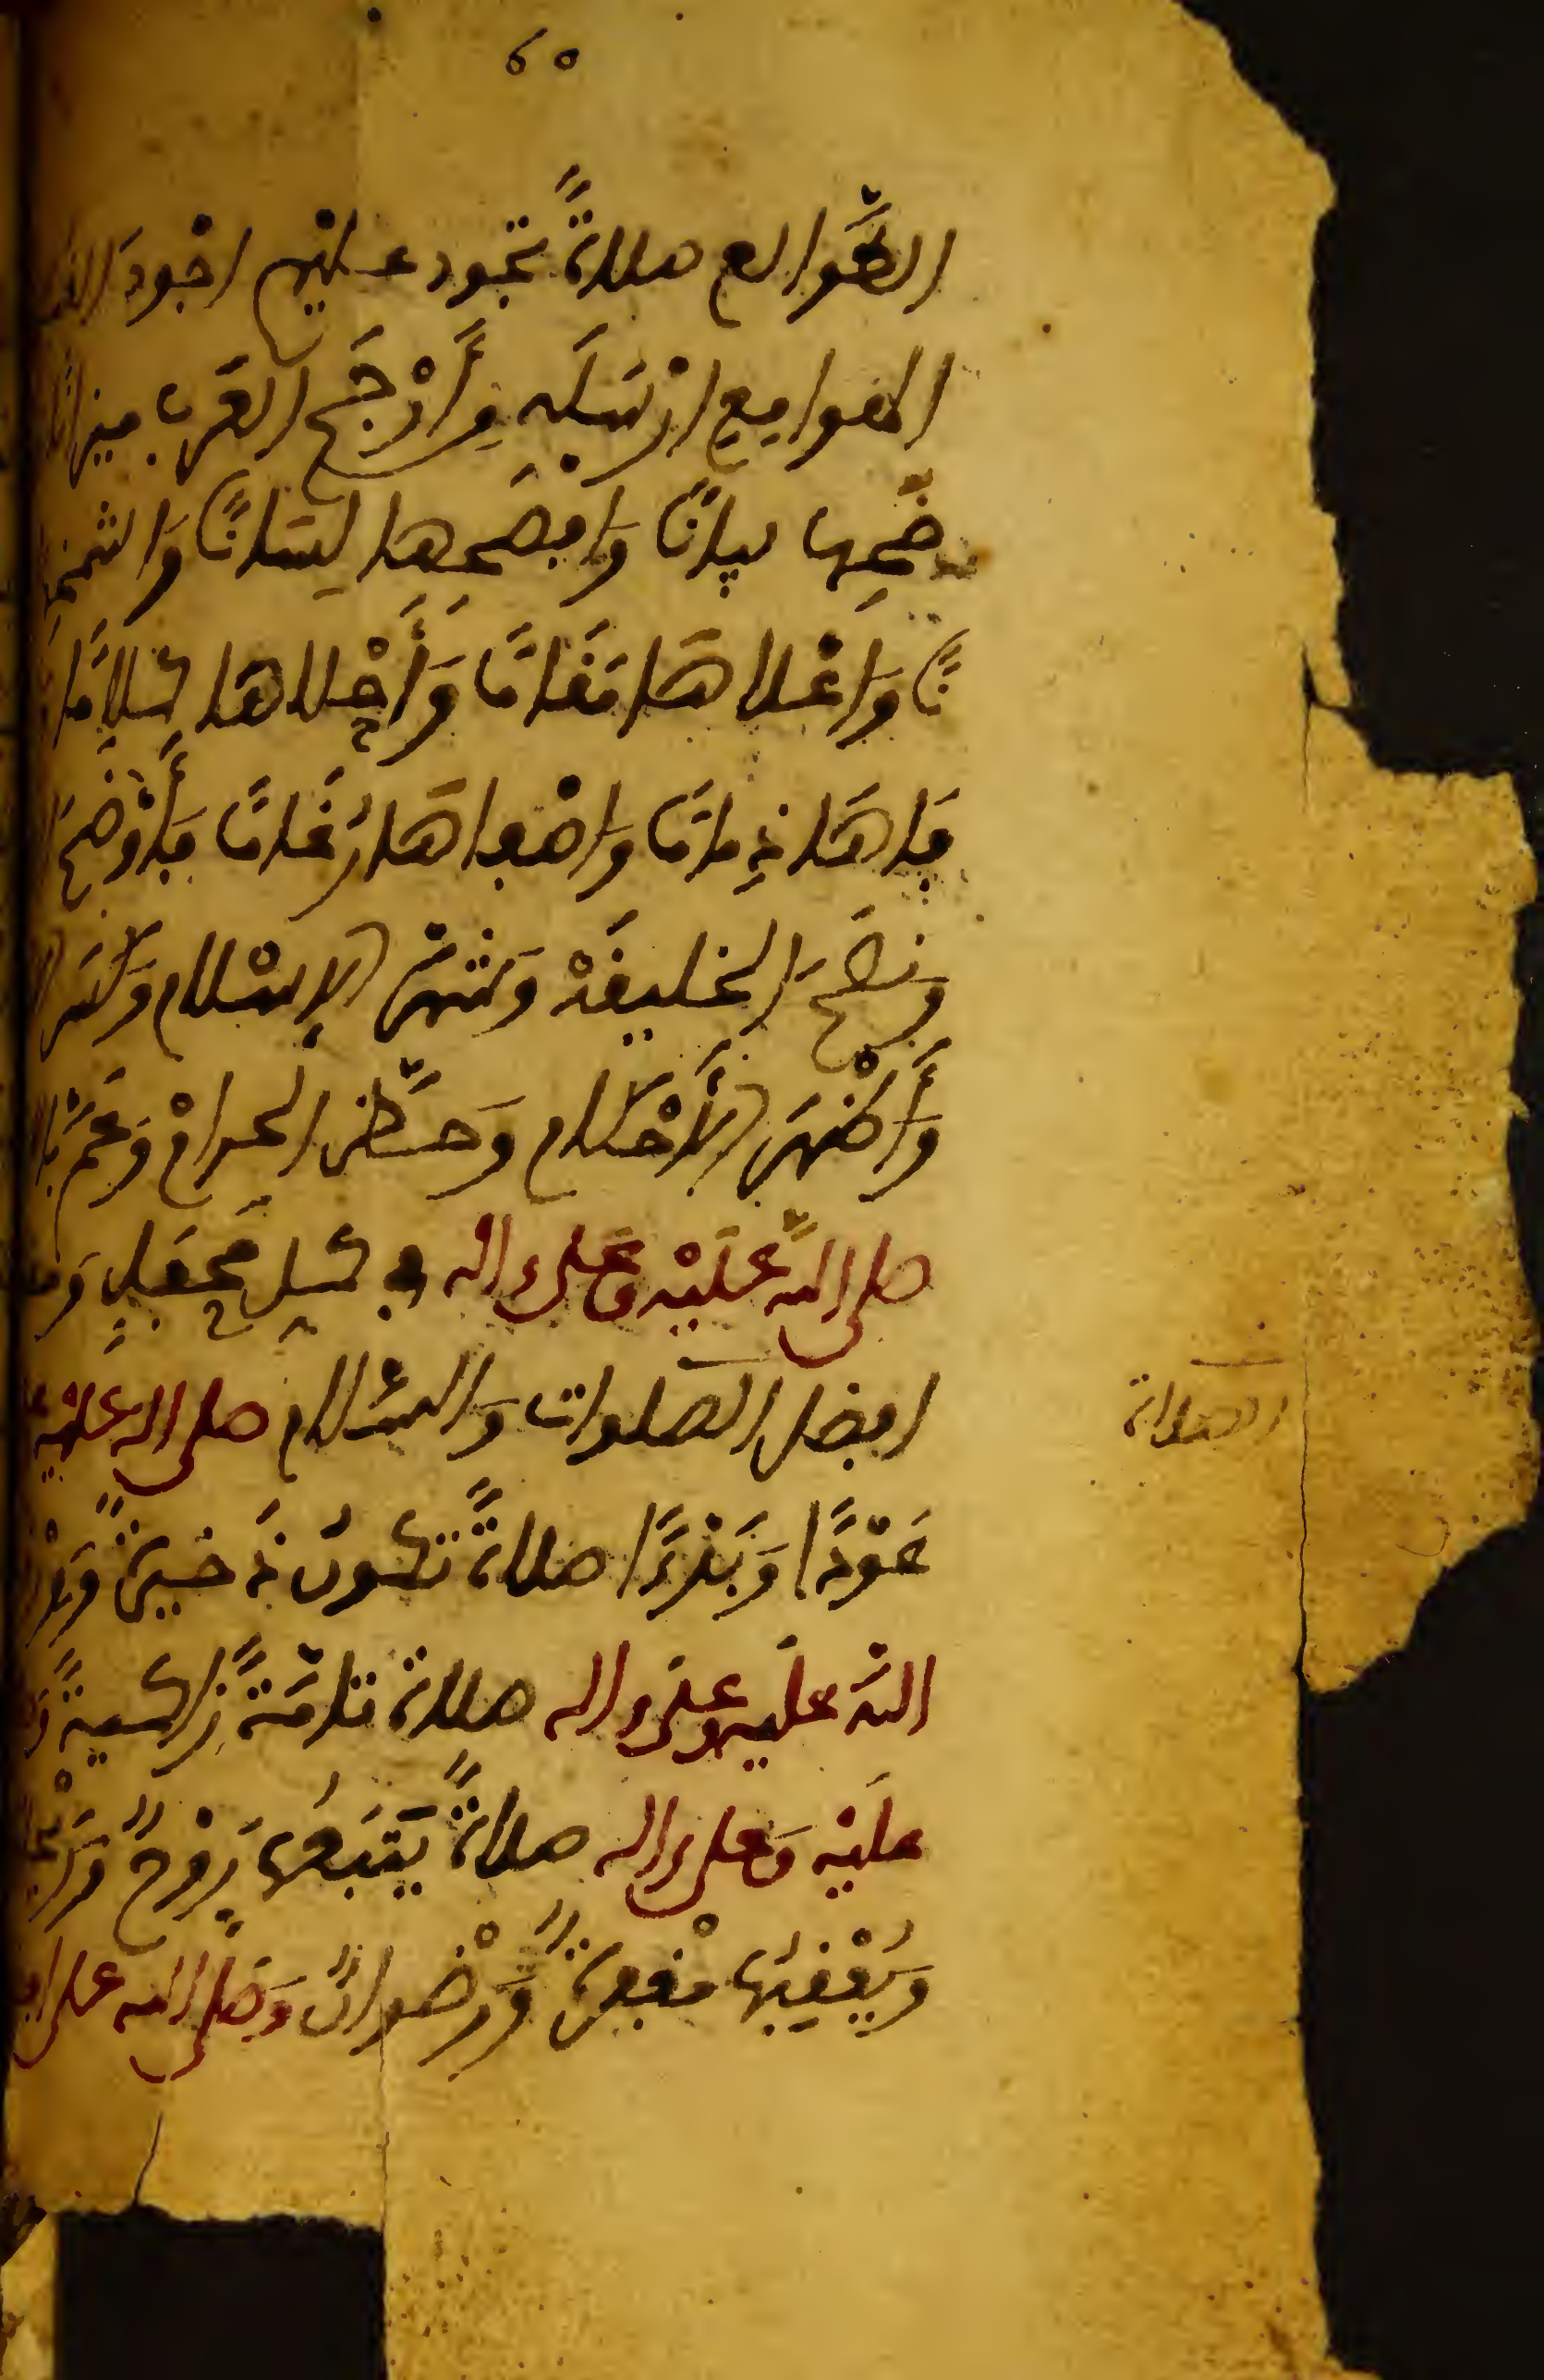 ٦٥
الطَّوالع صلاةً تجود عليهم اجْودَ
الهوامِعِ ارْسَلَهِ مِنْ أَرْجَحِ العَرَبِ ميزانًا
ضَحِهَا بيانًا وَافصَحِهَا لِسَانًا وَاشمخِ
نًا وَاعْلاهَا مَقَامًا وَأَحْلاهَا كَلامًا
فَاهَا ذِمامًا وَاصْفاهَا رُغَامًا فَأوْضَحَ
وَنصَحَ الخليفَةْ وَشهر الإسْلام وَكَسَر
وَأَظْهَرَ الأَحْكام وَحَظَّر الحرامْ وَعَمَّ بالا
صلى اللهُ عَلَيْهِ وَعَلى ءاله في كل مَحفِلٍ وَم
افضل الصلوات وَالسَّلام صلى الله عليْهِ
عَوْدًا وَبَدْءًا صلاةً تكونُ ذَخيرةً وَوِرْ
اللهُ عَلَيهِ وعلى ءاله صلاة تامَّةً زاكيةً وَ
علَيْهِ وَعلى ءاله صلاةً يَتبَعُهَا رَوْحٌ وَرَيْ
وَيُعْقِبُهَا مغْفِرةٌ وَرِضْوانٌ وَصَلى الله على
الصلاة